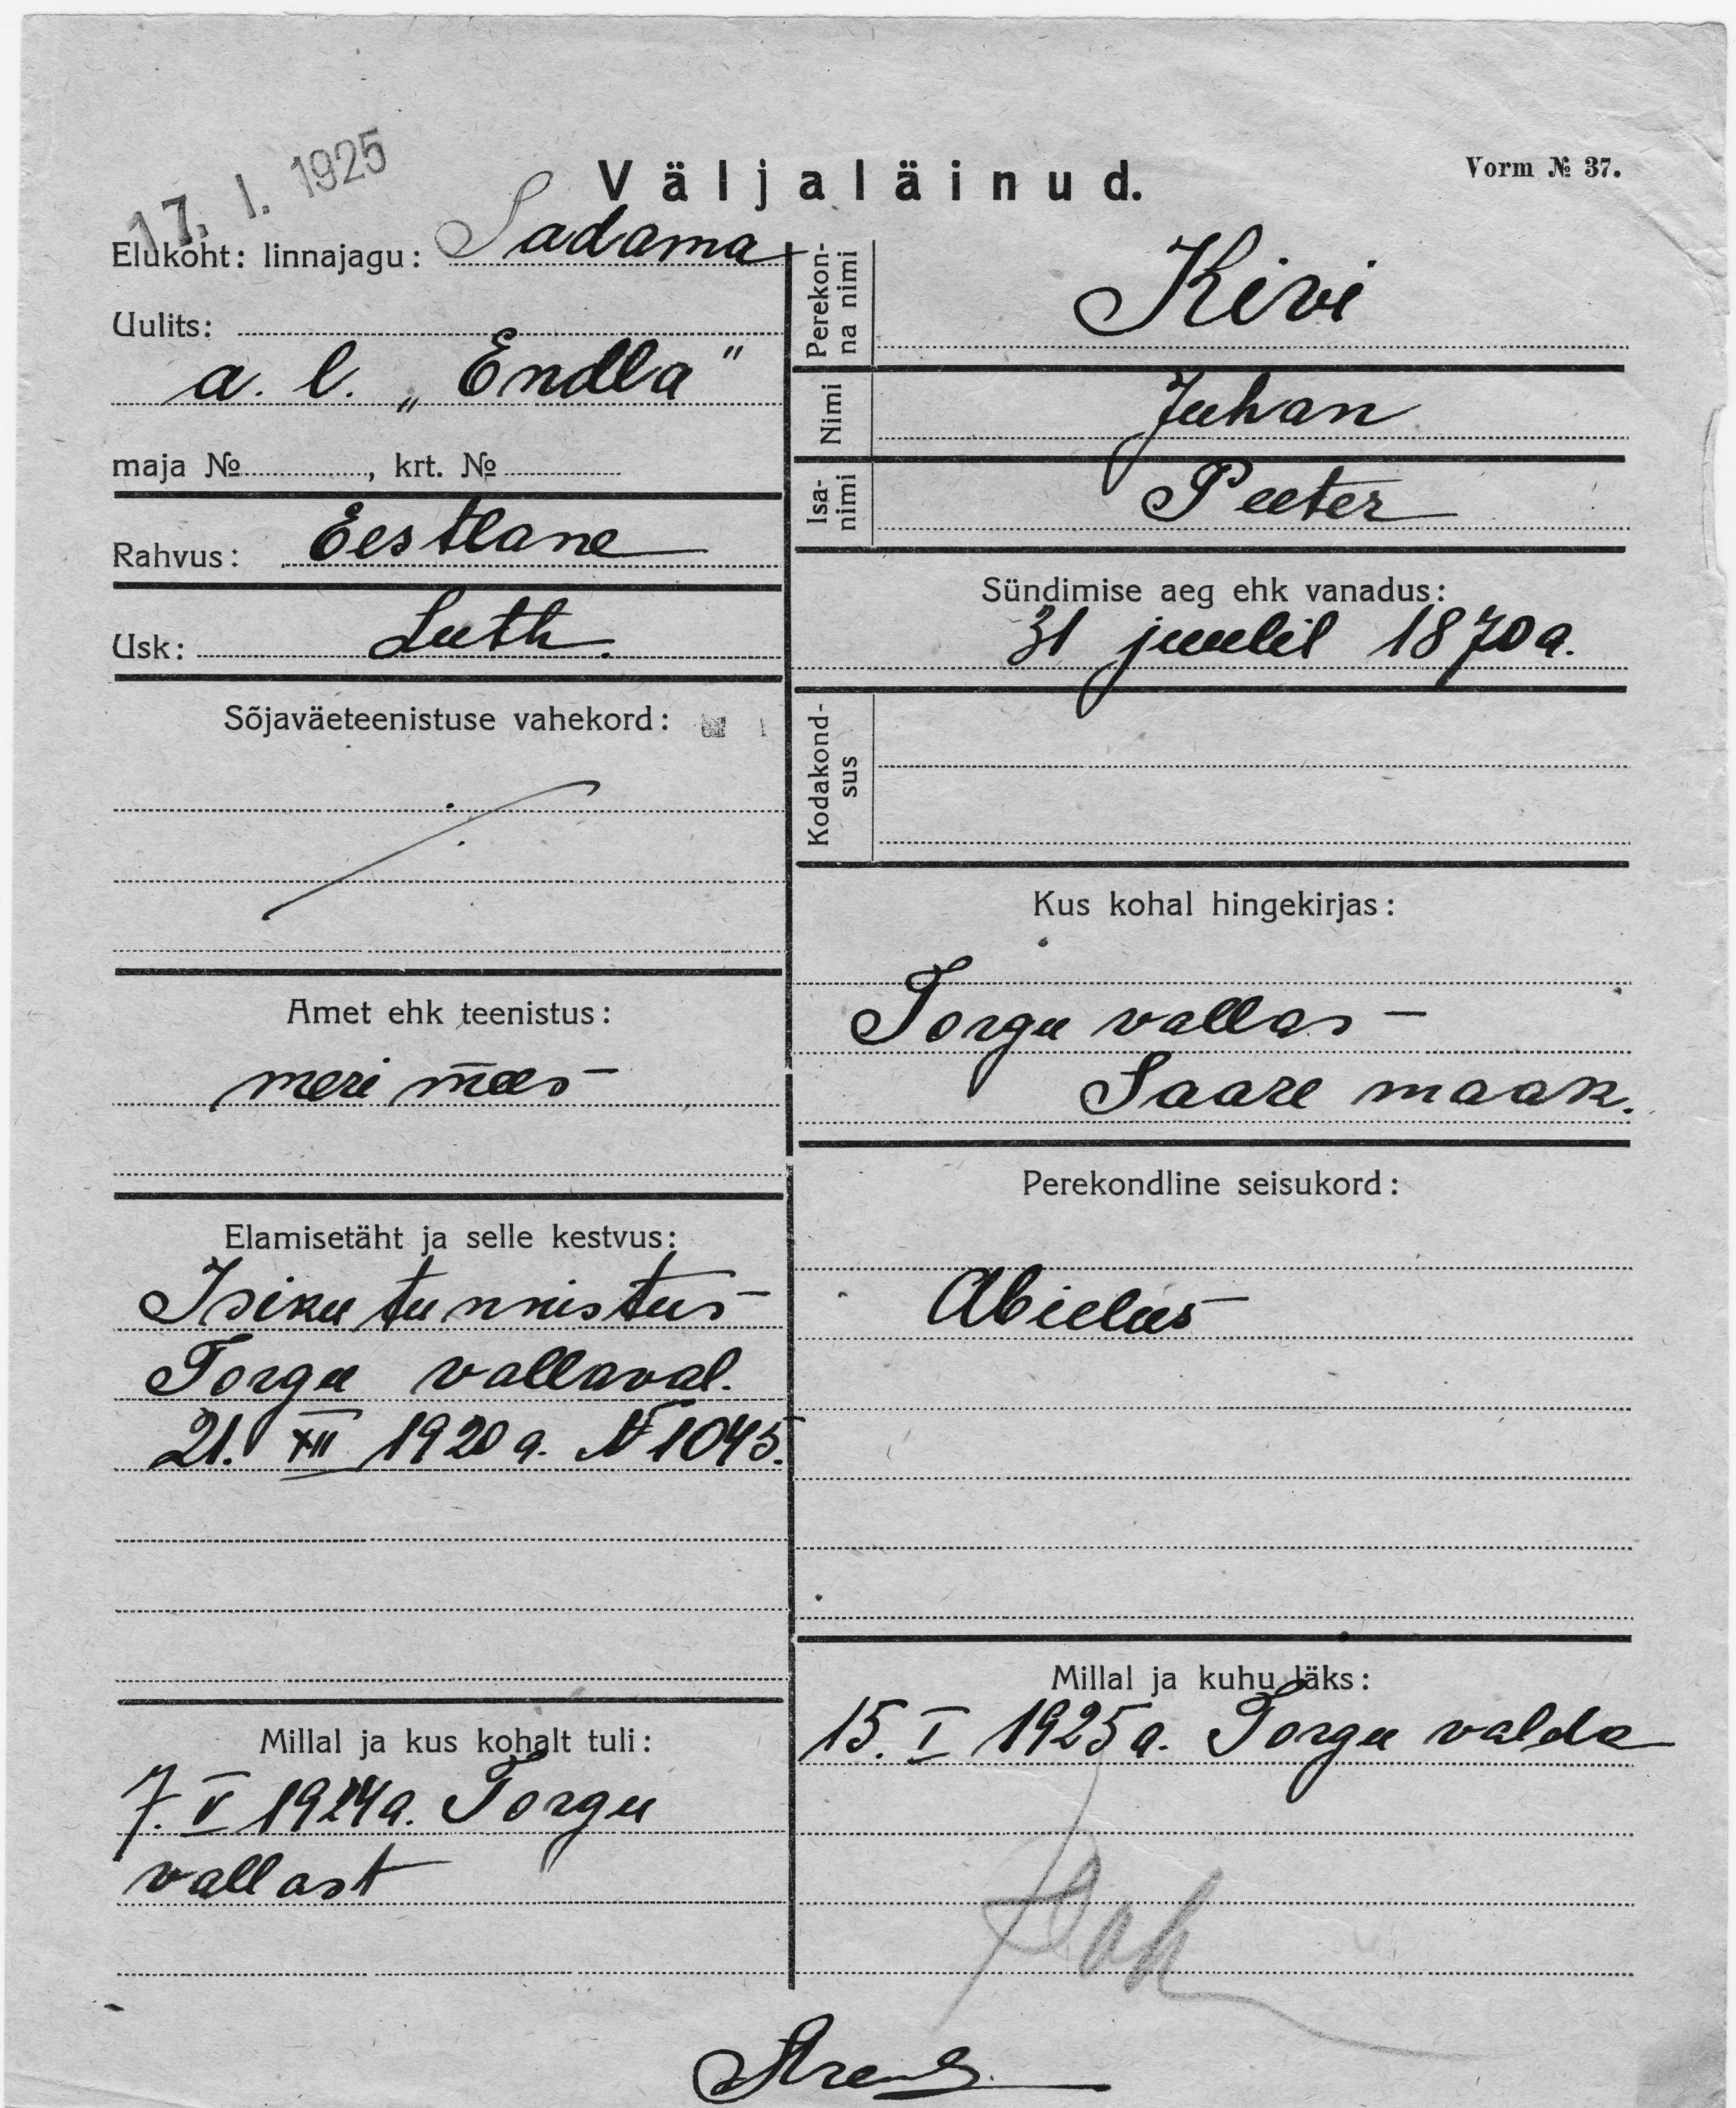 17. I. 1925
Väljaläinud.
Vorm № 37.
Elukoht: linnajagu: Sadama
Uulits:
a. l. „Endla"
maja № , krt. №
Rahvus: Eestlane
Usk: Luth.
Sõjaväeteenistuse vahekord:
Amet ehk teenistus:
meri mees
Elamisetäht ja selle kestvus:
Isiku tunnistus
Torgu vallaval.
21. XII 1920 a. № 1045.
Millal ja kus kohalt tuli:
7. V 1924 a. Torgu
vallast
Perekon-
na nimi
Kivi
Nimi Juhan
Isa-
nimi
Peeter
Sündimise aeg ehk vanadus:
31 juulil 1870 a.
Kodakond-
sus
Kus kohal hingekirjas:
Torgu vallas
Saare maak.
Perekondline seisukord:
Abielus
Millal ja kuhu läks:
15. I 1925 a. Torgu valda